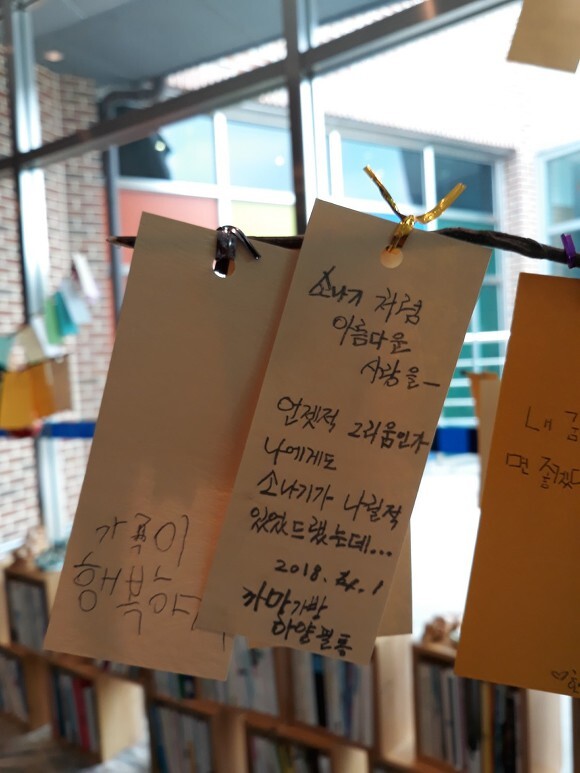 가족이
행복
소나기 처럼
아름다운
사랑을—
언젯적 그리움인가
나에게도
소나기가 나릴적
있었드랬는데...
2018. 4. 1
까망가방
하양필통
내
면 좋겠다